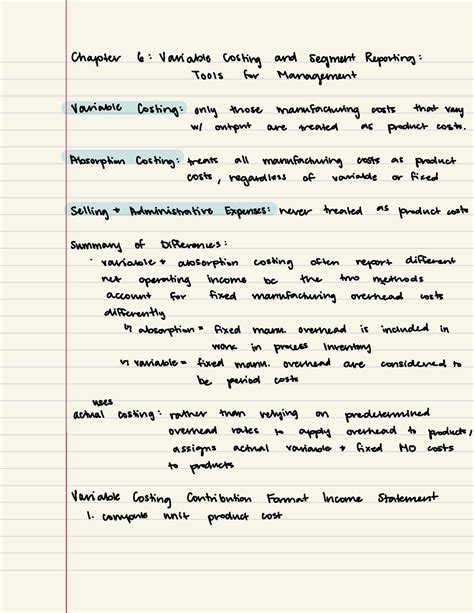 Chapter 6: Variable Costing and Segment Reporting:
Tools for Management
Variable Costing: only those manufacturing costs that vary
w/ output are treated as product costs.
Absorption Costing: treats all manufacturing costs as product
costs, regardless of variable or fixed
Selling + Administrative Expenses: never treated as product costs
Summary of Differences:
· variable + absorption costing often report different
net operating income bc the two methods
account for fixed manufacturing overhead costs
differently
↳ absorption = fixed manu. overhead is included in
work in process inventory
↳ variable = fixed manu. overhead are considered to
be period costs
uses
actual costing: rather than relying on predetermined
overhead rates to apply overhead to products,
assigns actual variable + fixed MO costs
to products
Variable Costing Contribution Format Income Statement
1. compute unit product cost